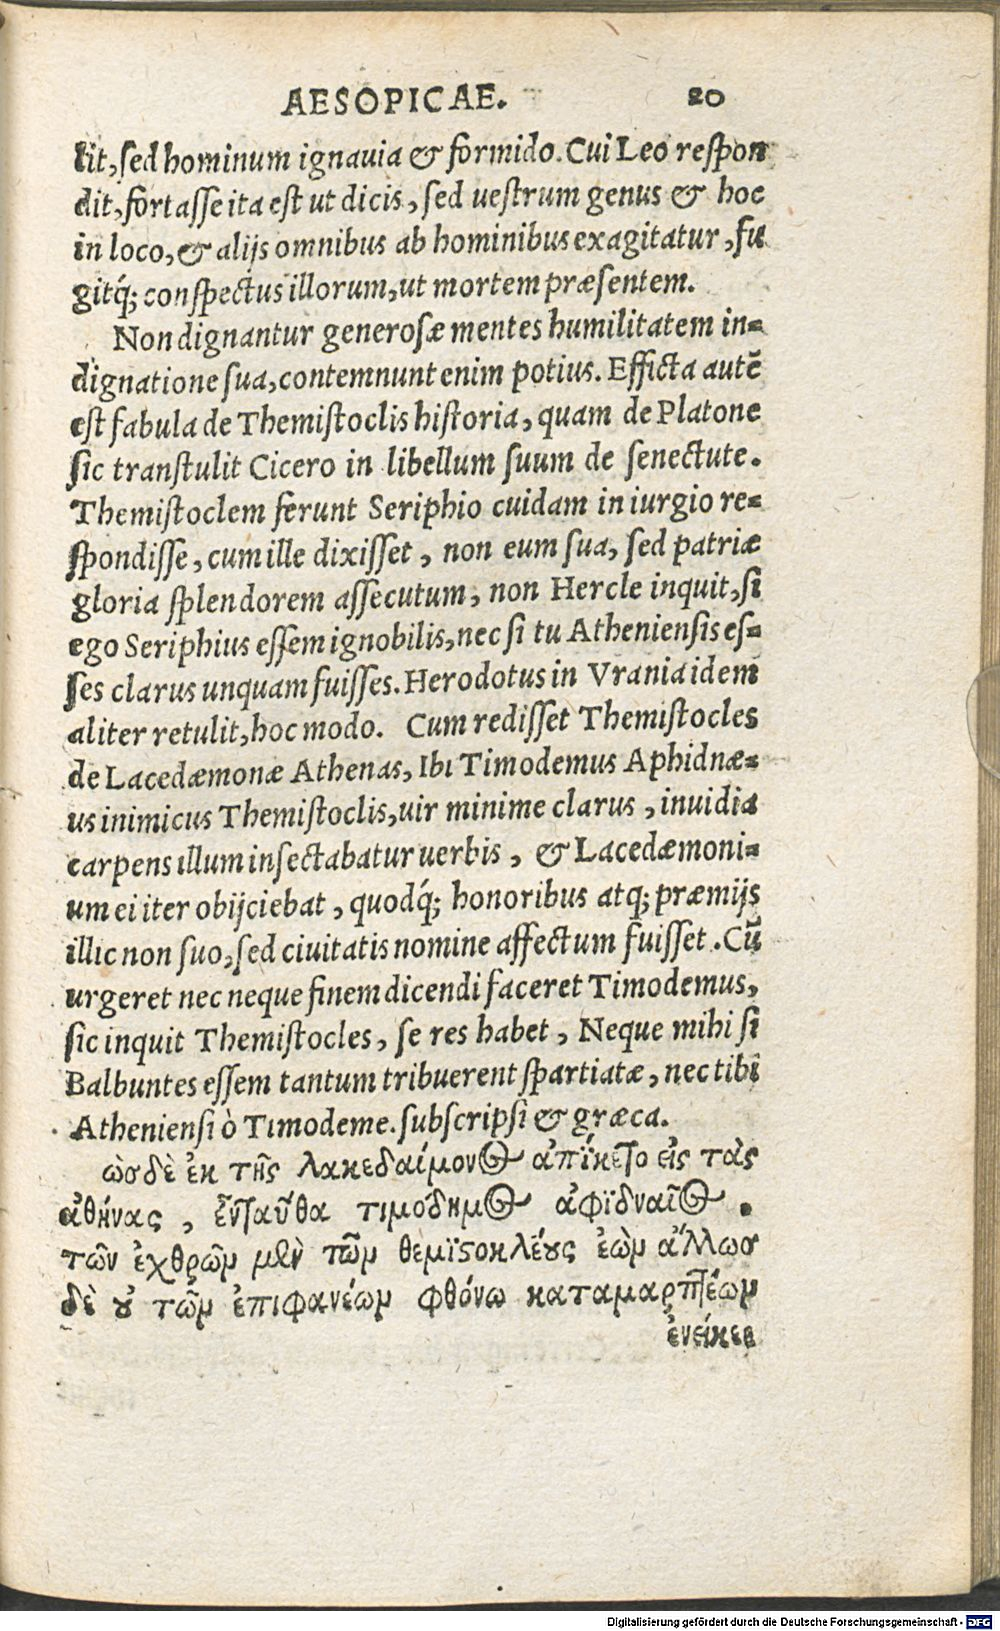 AESOPICAE. 20
tit, sed hominum ignauia & formido. Cui Leo respon
dit, fortasse ita est ut dicis, sed uestrum genus & hoc
in loco, & alijs omnibus ab hominibus exagitatur, fu
gitq́; conspectus illorum, ut mortem præsentem.
Non dignantur generosæ mentes humilitatem in-
dignatione sua, contemnunt enim potius. Efficta autē
est fabula de Themistoclis historia, quam de Platone
sic transtulit Cicero in libellum suum de senectute.
Themistoclem ferunt Seriphio cuidam in iurgio re-
spondisse, cum ille dixisset, non eum sua, sed patriæ
gloria splendorem assecutum, non Hercle inquit, si
ego Seriphius essem ignobilis, nec si tu Atheniensis es-
ses clarus unquam fuisses. Herodotus in Vrania idem
aliter retulit, hoc modo. Cum redisset Themistocles
de Lacedæmonæ Athenas, Ibi Timodemus Aphidnæ-
us inimicus Themistoclis, uir minime clarus, inuidia
carpens illum insectabatur uerbis, & Lacedæmoni-
um ei iter obijciebat, quodq́; honoribus atq; præmijs
illic non suo, sed ciuitatis nomine affectum fuisset. Cū
urgeret nec neque finem dicendi faceret Timodemus,
sic inquit Themistocles, se res habet, Neque mihi si
Balbuntes essem tantum tribuerent spartiatæ, nec tibi
Atheniensi ò Timodeme. subscripsi & græca.
ὡσ δὲ ἐκ τῆς λακεδαίμονος ἀπΐκετο εἰς τὰς
ἀθήνας, ἐνταῦθα τιμόδημος ἀφϊδναῖος.
τῶν ἐχθρῶν μὲν τῶν θεμϊστοκλέους ἐὼν ἄλλωσ
δὲ οὐ τῶν ἐπιφανέων φθόνω καταμαργέων
ἐνείκεε
Digitalisierung gefördert durch die Deutsche Forschungsgemeinschaft - DFG